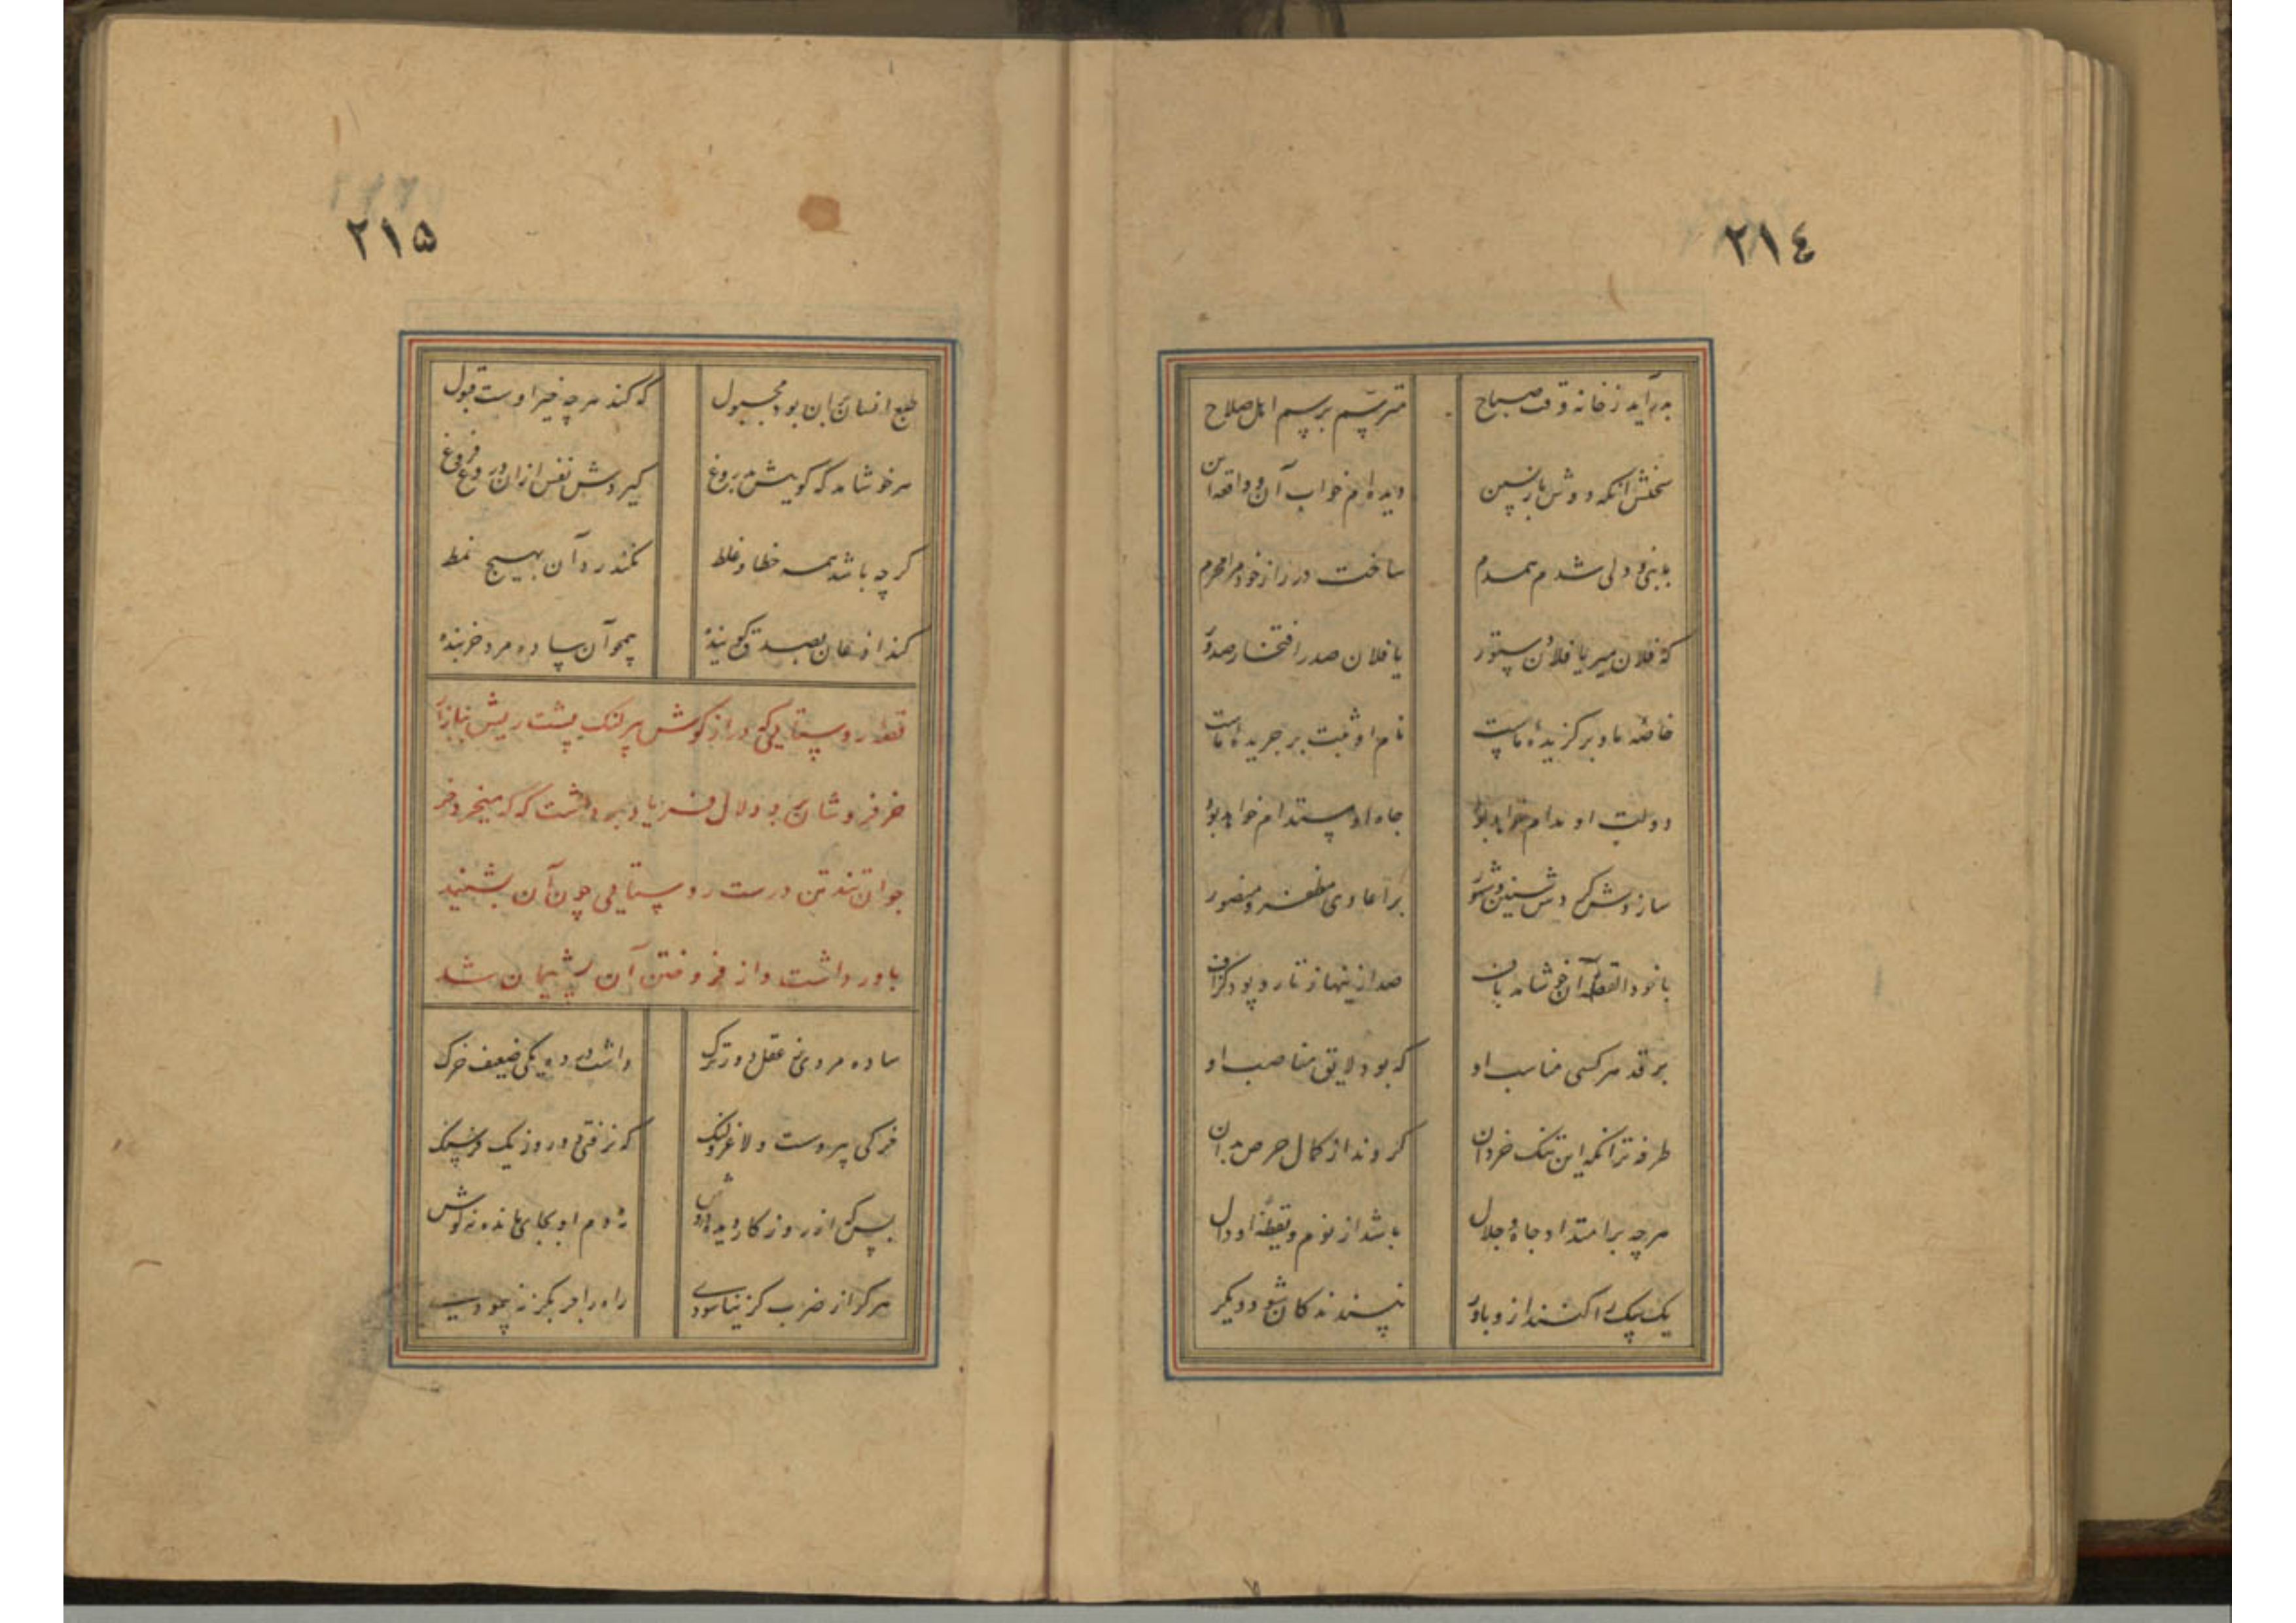 ٢١٤
بدرآید ز خانه وقت صباح مترسم برسم اهل صلاح
سخنش آنکه دوش باز پسین دیده‌ام خواب آن و واقعه این
بدنی و ولی شدم همدم ساخت در راز خود مرا محرم
که فلان میر یا فلان دستور یا فلان صدر افتخار صدور
خاصهٔ ما و برگزیدهٔ ماست نام او ثبت بر جریدهٔ ماست
دولت او مدام خواهد بود جاه او مستدام خواهد بود
سازدش کردش سنین و شهور بر اعادی مظفر و منصور
بافد القصه آن خوشامدباف صد ازینها ز تار و پود گزاف
بر قد هر کسی مناسب او که بود لایق مناصب او
طرفه‌تر آنکه این تنک خردان گروند از کمال حرص بدان
هرچه بر امتداد جاه و جلال باشد از نوم و یقظهٔ او دال
یک بیک را کنند ازو باور نپسندند کان شود دیگر
٢١۵
طبع انسان بر آن بود مجبول که کند هرچه خیر اوست قبول
هر خوشامد که گویش بدروغ گیردش نفس ازان دروغ فروغ
گرچه باشد همه خطا و غلط نکند رد آن بهیچ نمط
کند اذعان بصدق گوینده همچو آن ساده مرد خربنده
قصهٔ روستایی که درازگوش پیر لنگ پشت ریش ببازار
خرفروشان برد و دلال فریاد برداشت که که میخرد خر
جوان تند تن درست روستایی چون آن بشنید
باور داشت و از فروختن آن پشیمان شد
ساده مردی نه عقل و درک داشت در ده یکی ضعیف خرک
خرکی پیر و سست و لاغر و لنگ که نرفتی دو روز یک فرسنگ
بس که از روزگار دیده نه دم او بجای مانده نه گوش
هرگز از ضرب گز نیاسودی راه را جز بگز نپیمودی